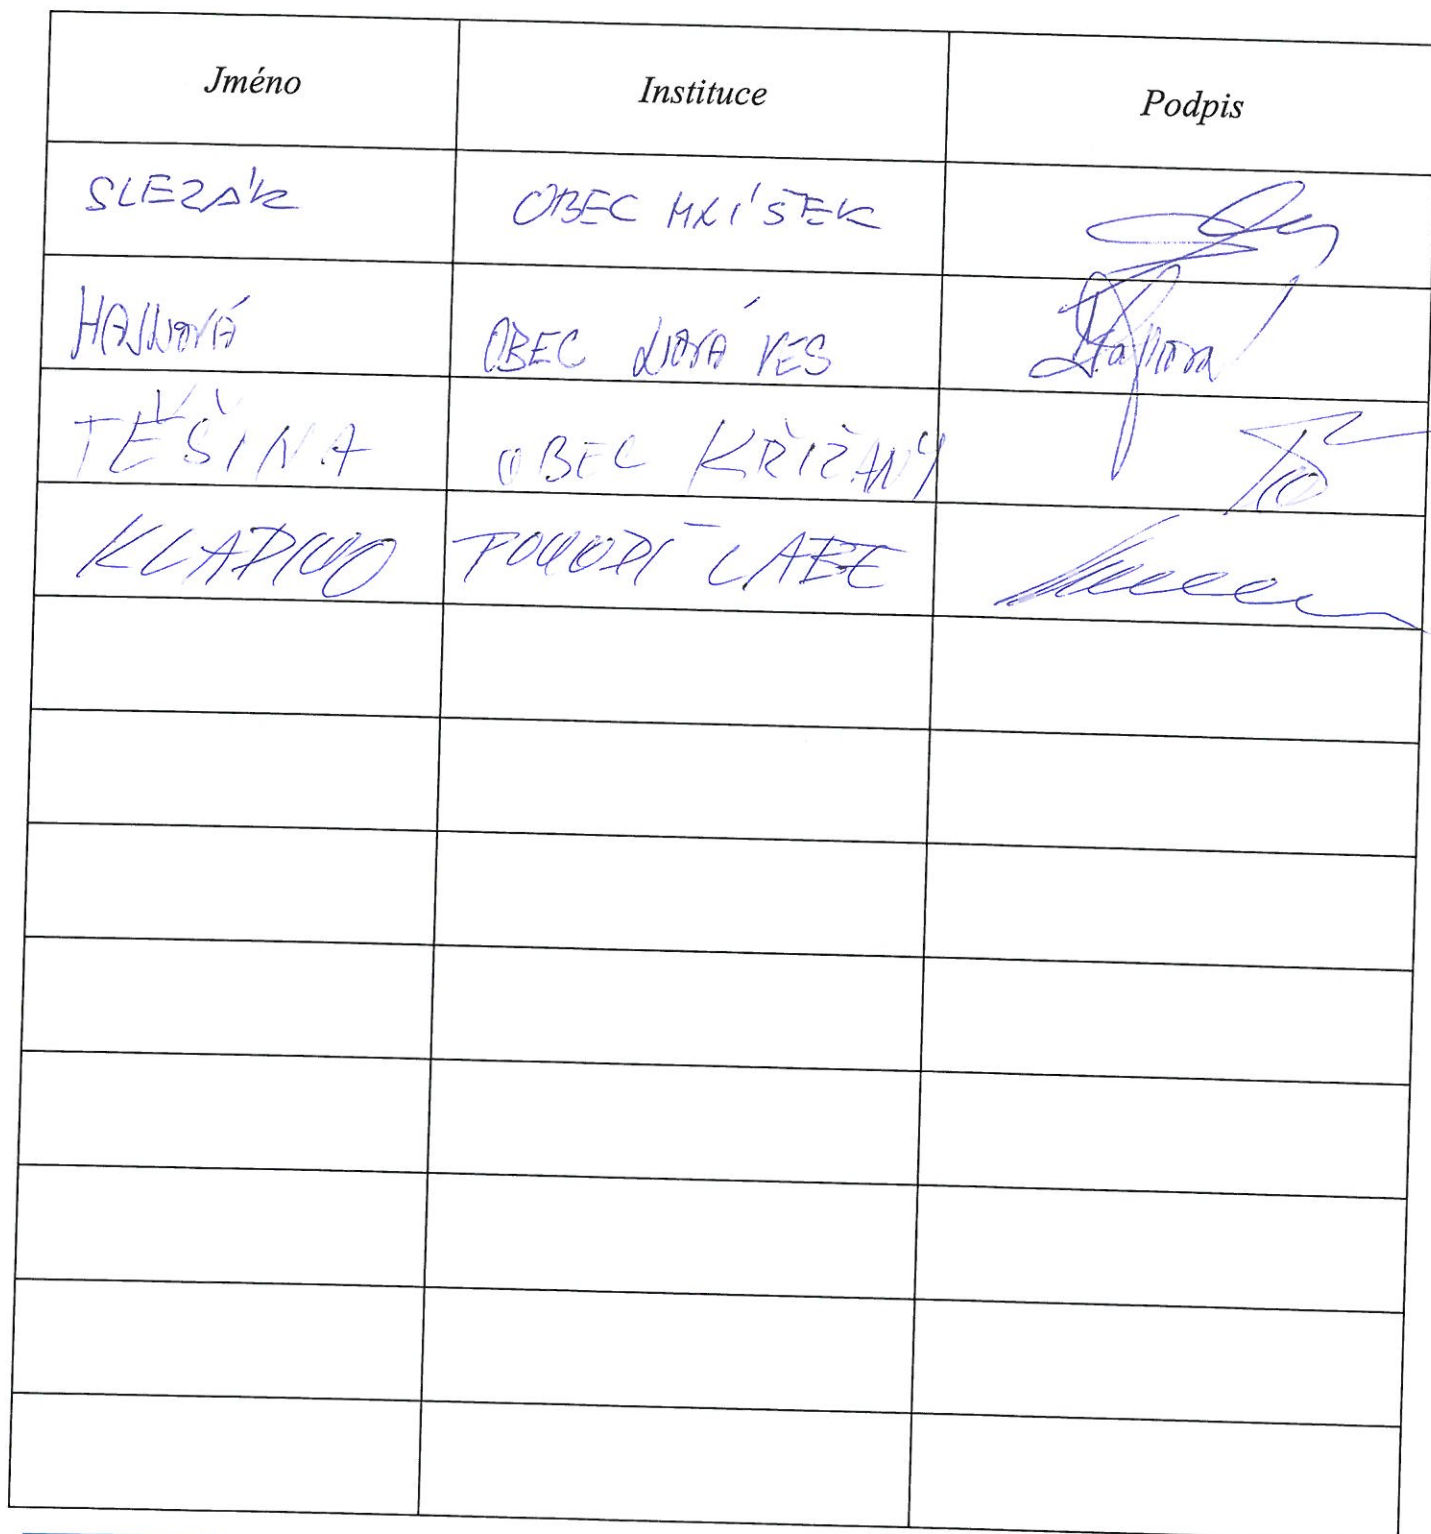 Jméno Instituce Podpis
SLEZÁK OBEC MNÍŠEK
HAJNOVÁ OBEC NOVÁ VES
TĚŠINA OBEC KŘIŽANY
KLADIVO POVODÍ LABE